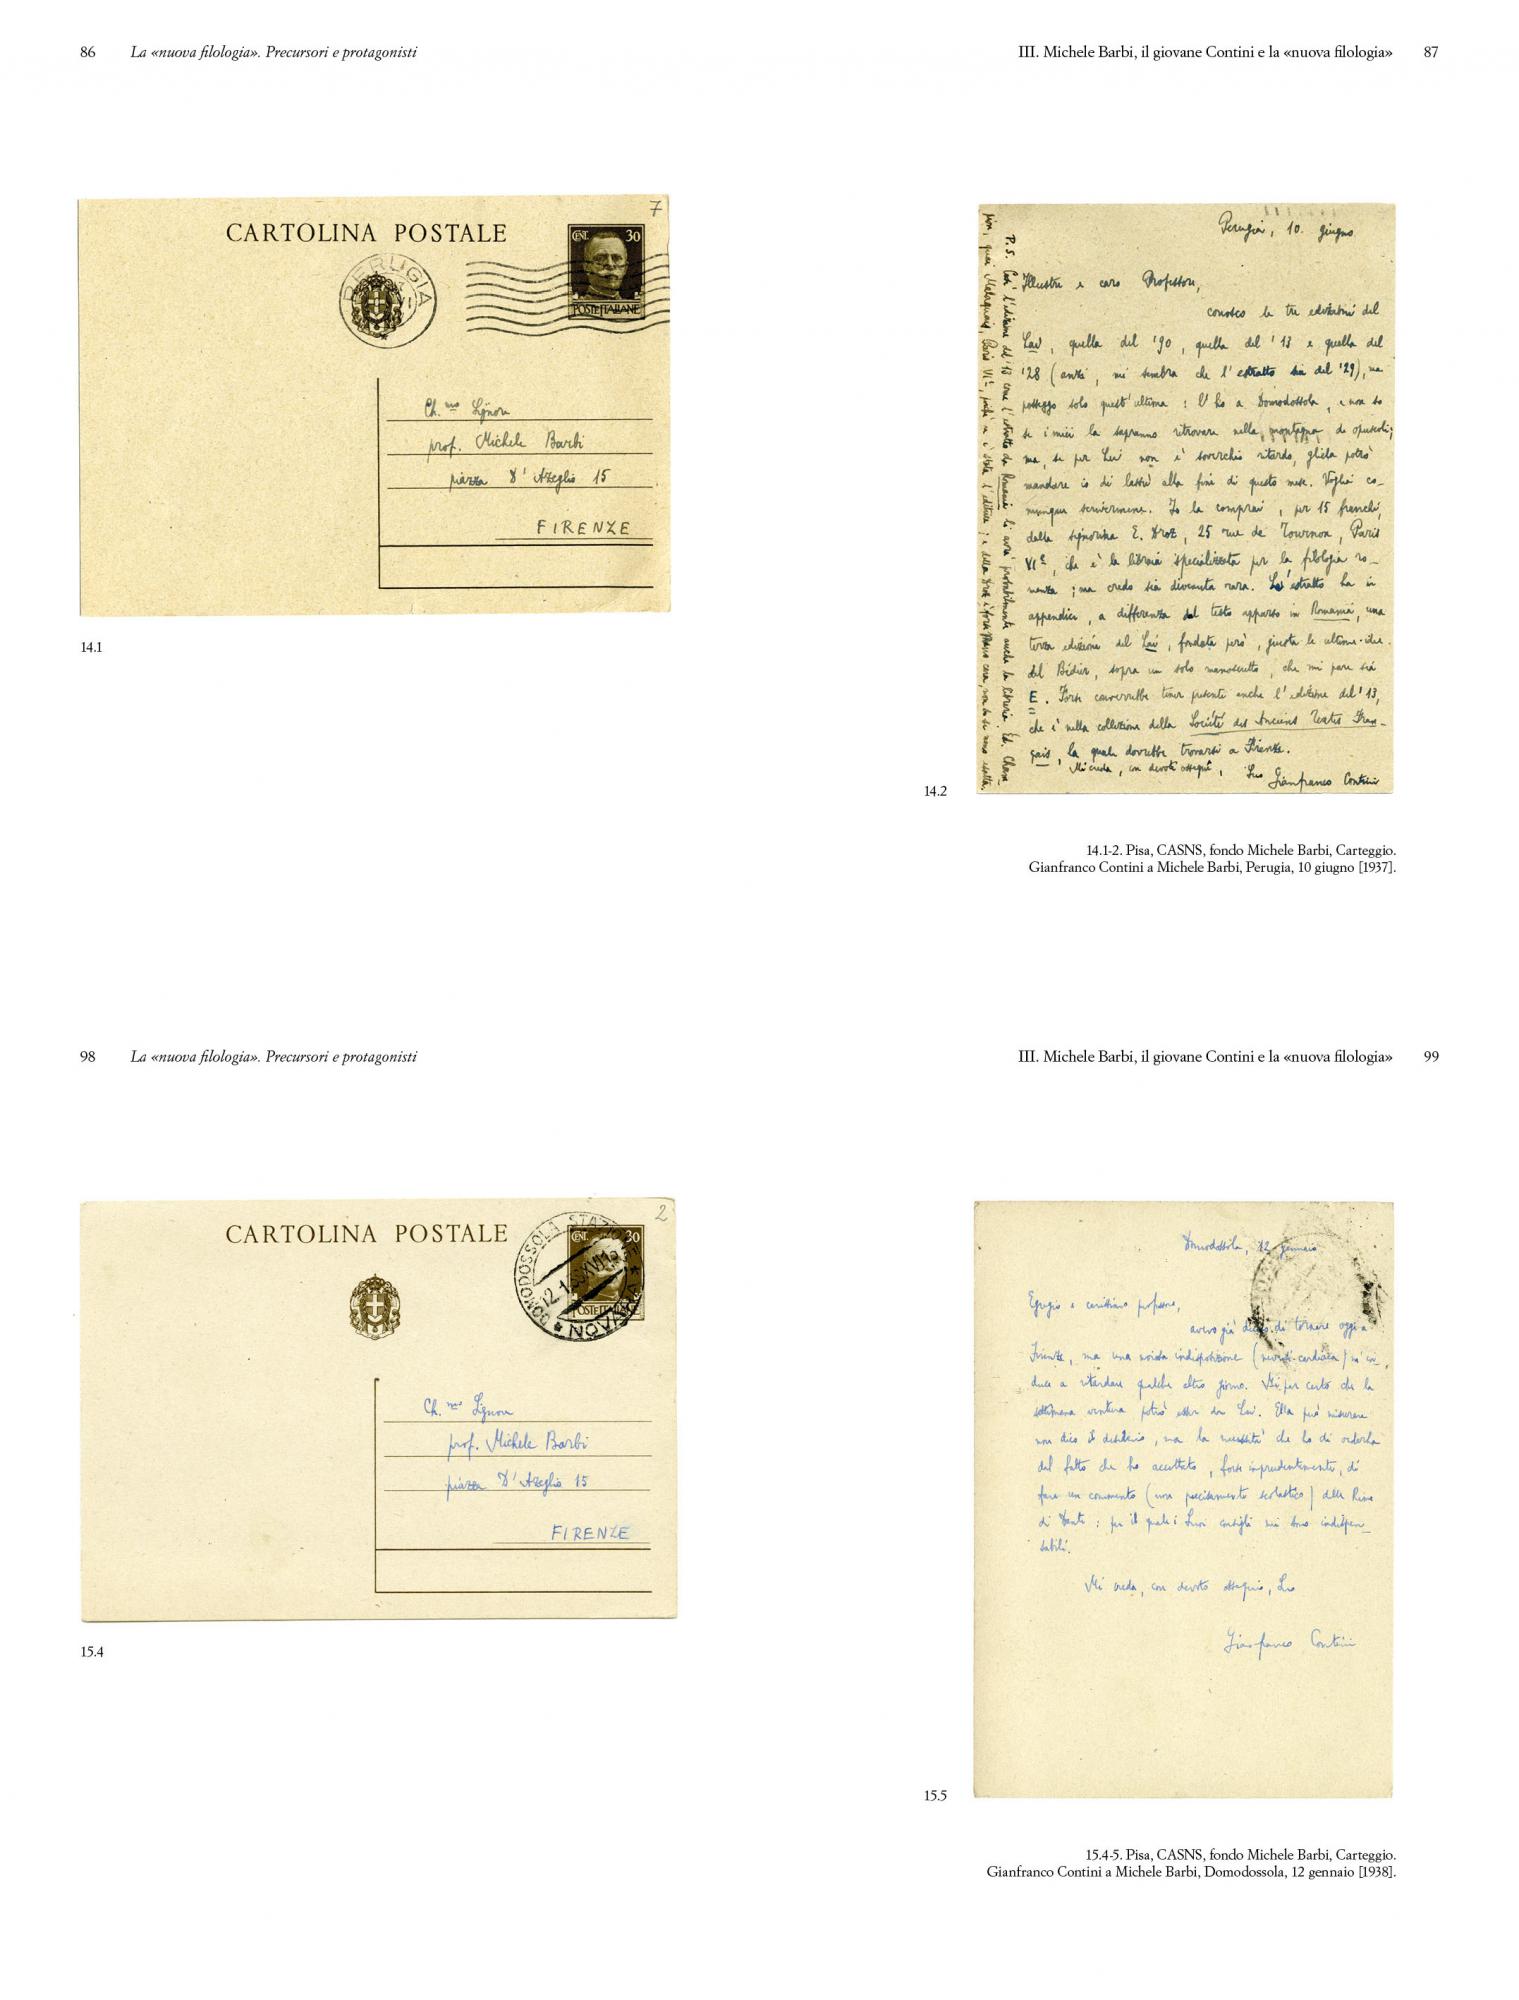 86 La «nuova filologia». Precursori e protagonisti
III. Michele Barbi, il giovane Contini e la «nuova filologia» 87
7
CARTOLINA POSTALE
CENT. 30
POSTE ITALIANE
PERUGIA
Ch.mo Signor
prof. Michele Barbi
piazza D'Azeglio 15
FIRENZE
14.1
Perugia, 10 giugno
Illustre e caro Professore,
conosco le tre edizioni del
Lai, quella del '90, quella del '13 e quella del
'28 (anzi, mi sembra che l'estratto sia del '29), ma
posseggo solo quest'ultima: l'ho a Domodossola, e non so
se i miei la sapranno ritrovare nella montagna di opuscoli;
ma, se per Lei non è soverchio ritardo, gliela potrò
mandare io di lassù alla fine di questo mese. Voglia co-
munque scrivermene. Io la comprai, per 15 franchi,
dalla signorina E. Droz, 25 rue de Tournon, Paris
VIe, che è la libraia specializzata per la filologia ro-
manza; ma credo sia divenuta rara. L'estratto ha in
appendice, a differenza del testo apparso in Romania, una
terza edizione del Lai, fondata però, giusta le ultime idee
del Bédier, sopra un solo manoscritto, che mi pare sia
E. Forse converrebbe tener presente anche l'edizione del '13,
che è nella collezione della Société des Anciens Textes Fran-
çais, la quale dovrebbe trovarsi a Firenze.
Mi creda, con devoti ossequi, Suo Gianfranco Contini
P.S. Così l'edizione del '13 come l'estratto da Romania li avrà probabilmente anche la libreria Ed. Cham-
pion, quai Malaquais, Paris VIe, poiché n'è stata l'editrice; e della Droz è forse meno cara, non so se meno esatta.
14.2
14.1-2. Pisa, CASNS, fondo Michele Barbi, Carteggio.
Gianfranco Contini a Michele Barbi, Perugia, 10 giugno [1937].
98 La «nuova filologia». Precursori e protagonisti
III. Michele Barbi, il giovane Contini e la «nuova filologia» 99
2
CARTOLINA POSTALE
CENT. 30
POSTE ITALIANE
DOMODOSSOLA STAZIONE
NOVARA
Ch.mo Signor
prof. Michele Barbi
piazza D'Azeglio 15
FIRENZE
15.4
Domodossola, 12 gennaio
Egregio e carissimo professore,
avevo già deciso di tornare oggi a
Firenze, ma una noiosa indisposizione (nevrosi cardiaca) m'in-
duce a ritardare qualche altro giorno. Ma per certo che la
settimana ventura potrò esser da Lei. Ella può misurare
non dico il desiderio, ma la necessità che ho di vederLa
dal fatto che ho accettato, forse imprudentemente, di
fare un commento (non precisamente scolastico) delle Rime
di Dante: per il quale i Suoi consigli mi sono indispen-
sabili.
Mi creda, con devoto ossequio, Suo
Gianfranco Contini
15.5
15.4-5. Pisa, CASNS, fondo Michele Barbi, Carteggio.
Gianfranco Contini a Michele Barbi, Domodossola, 12 gennaio [1938].